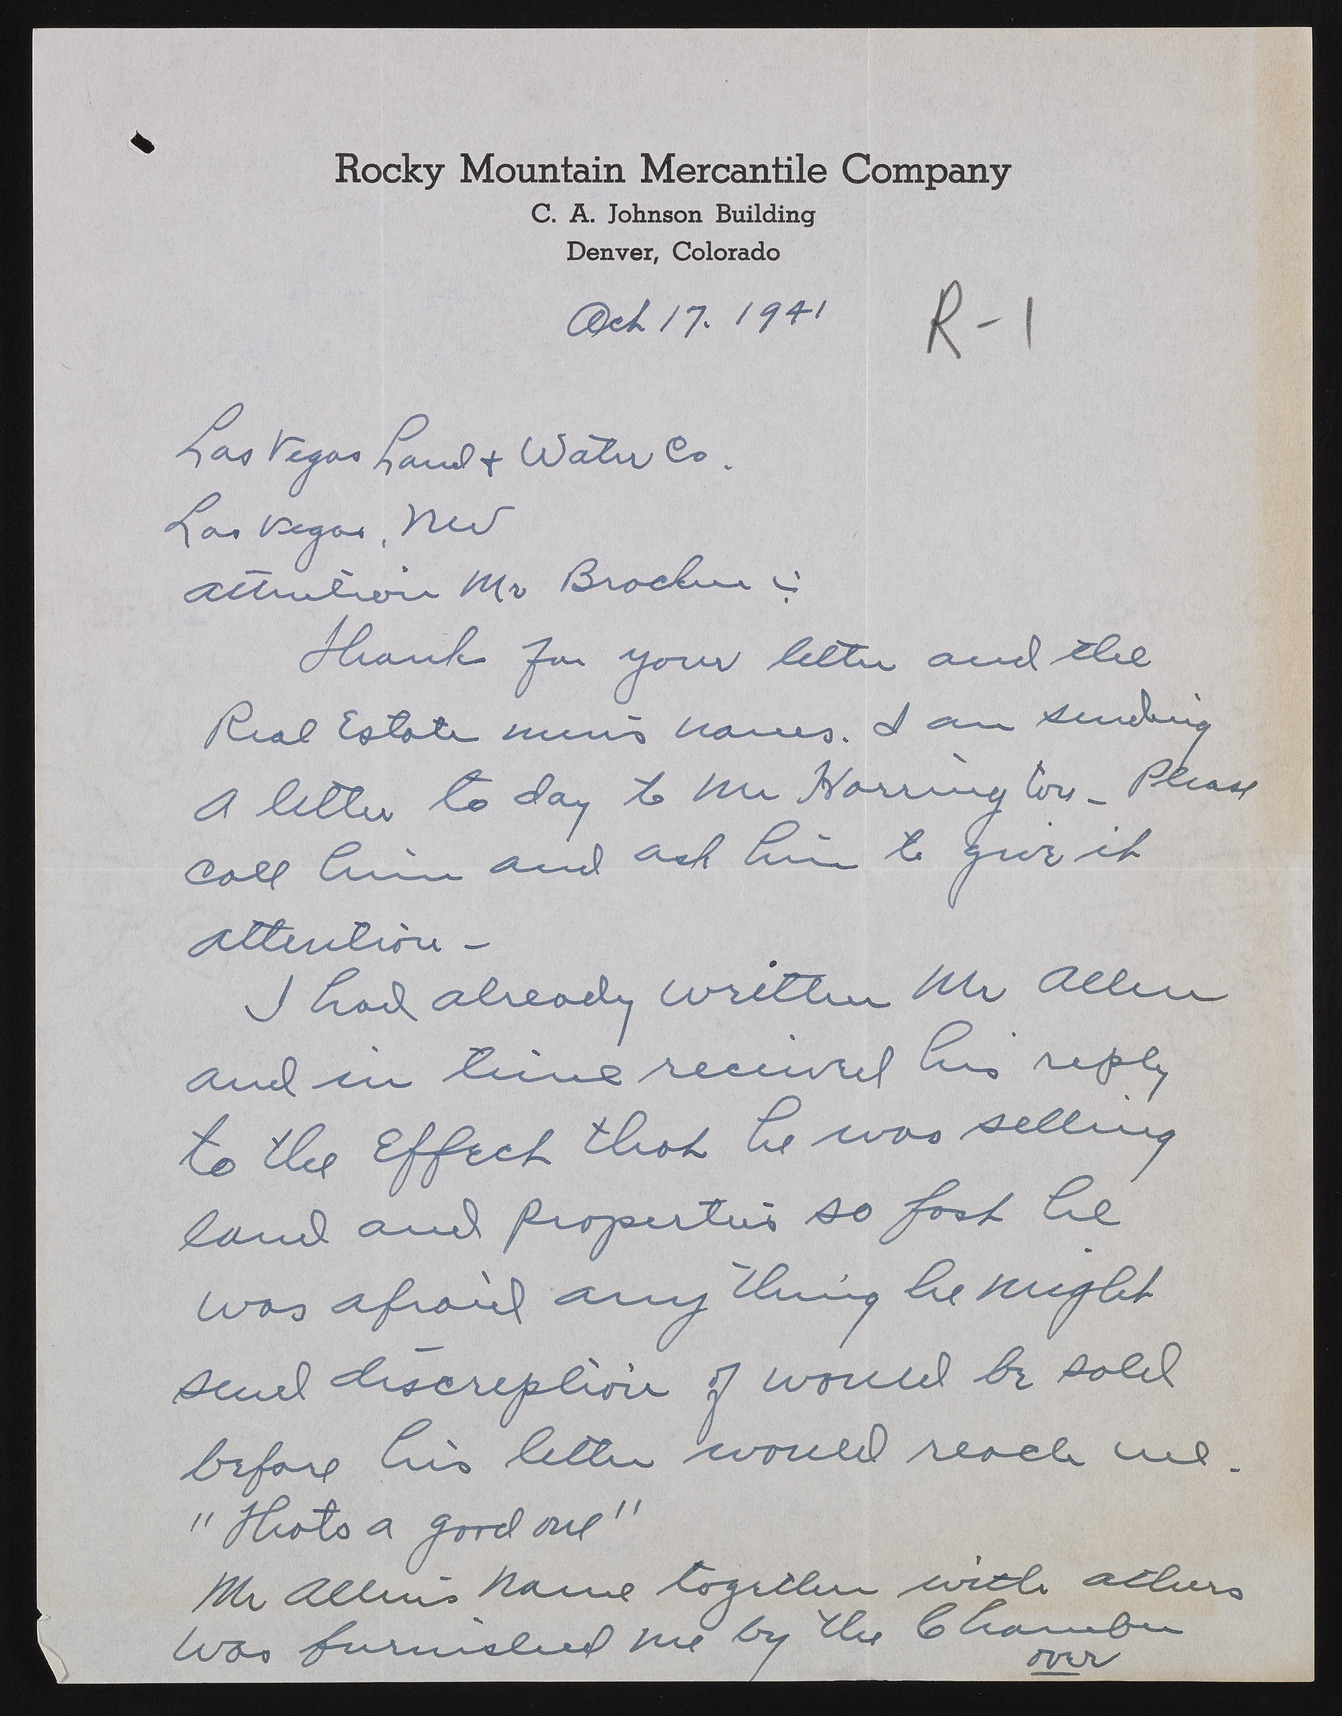 Rocky Mountain Mercantile Company
C. A. Johnson Building
Denver, Colorado
Oct 17. 1941
R-1
Las Vegas Land & Water Co.
Las Vegas, Nev
attention Mr
Thank for your letter and the
Real Estate men's names. I am sending
a letter to day to Mr Harrington - Please
call him and ask him to give it
attention -
I had already written Mr Allen
and in time received his reply
to the Effect that he was selling
land and properties so fast he
was afraid any thing he might
send discreption of would be sold
before his letter would reach me.
"Thats a good one"
Mr Allen's name together with others
was furnished me by the Chamber
over